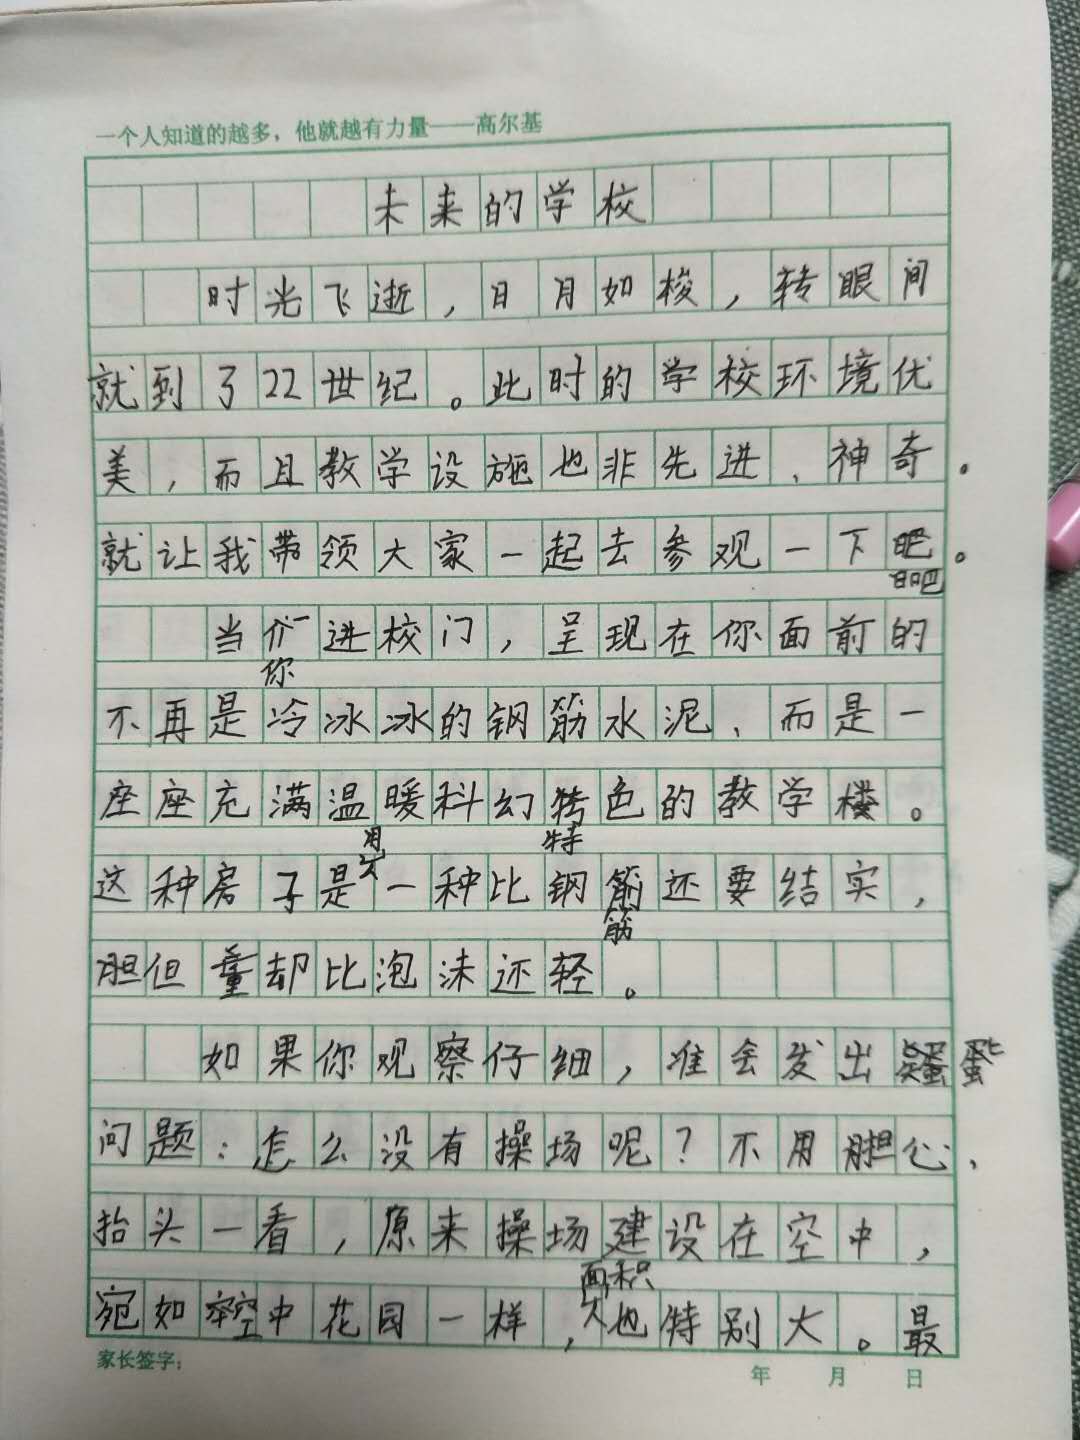 一个人知道的越多，他就越有力量——高尔基
未来的学校
时光飞逝，日月如梭，转眼间
就到了22世纪。此时的学校环境优
美，而且教学设施也非先进、神奇。
就让我带领大家一起去参观一下吧。
吧
当你一进校门，呈现在你面前的
你
不再是冷冰冰的钢筋水泥、而是一
座座充满温暖科幻特色的教学楼。
用 特
这种房子是一种比钢筋还要结实，
筋
胆但量却比泡沫还轻。
如果你观察仔细，准会发出疑
问题：怎么没有操场呢？不用担心、
抬头一看，原来操场建设在空中，
面积
宛如空中花园一样，也特别大。最
家长签字： 年 月 日